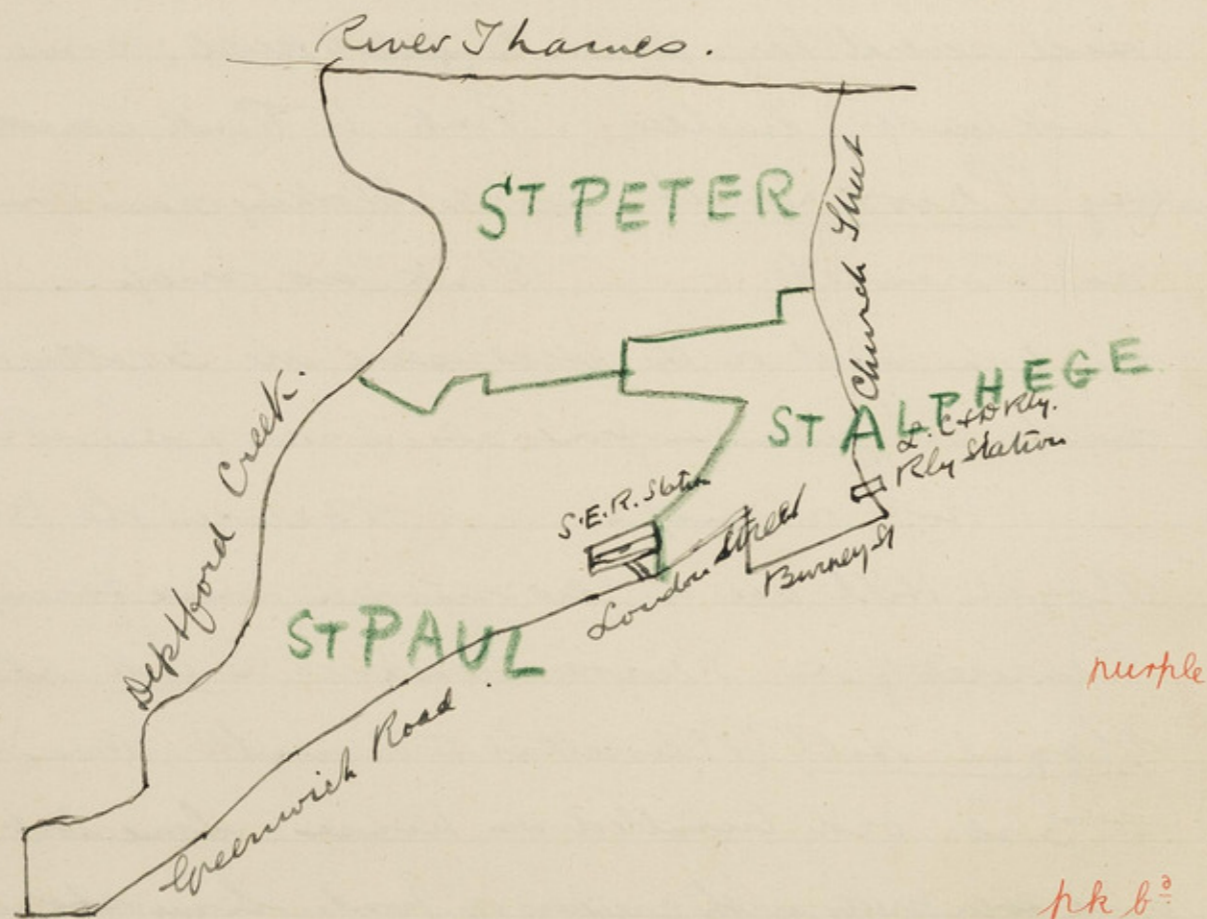 River Thames.
ST PETER
Church Street
ST ALPHEGE
L.C & D Rly.
Rly Station
Deptford Creek.
S.E.R. Station
London Street
Burney St
ST PAUL
Greenwich Road.
purple
pk